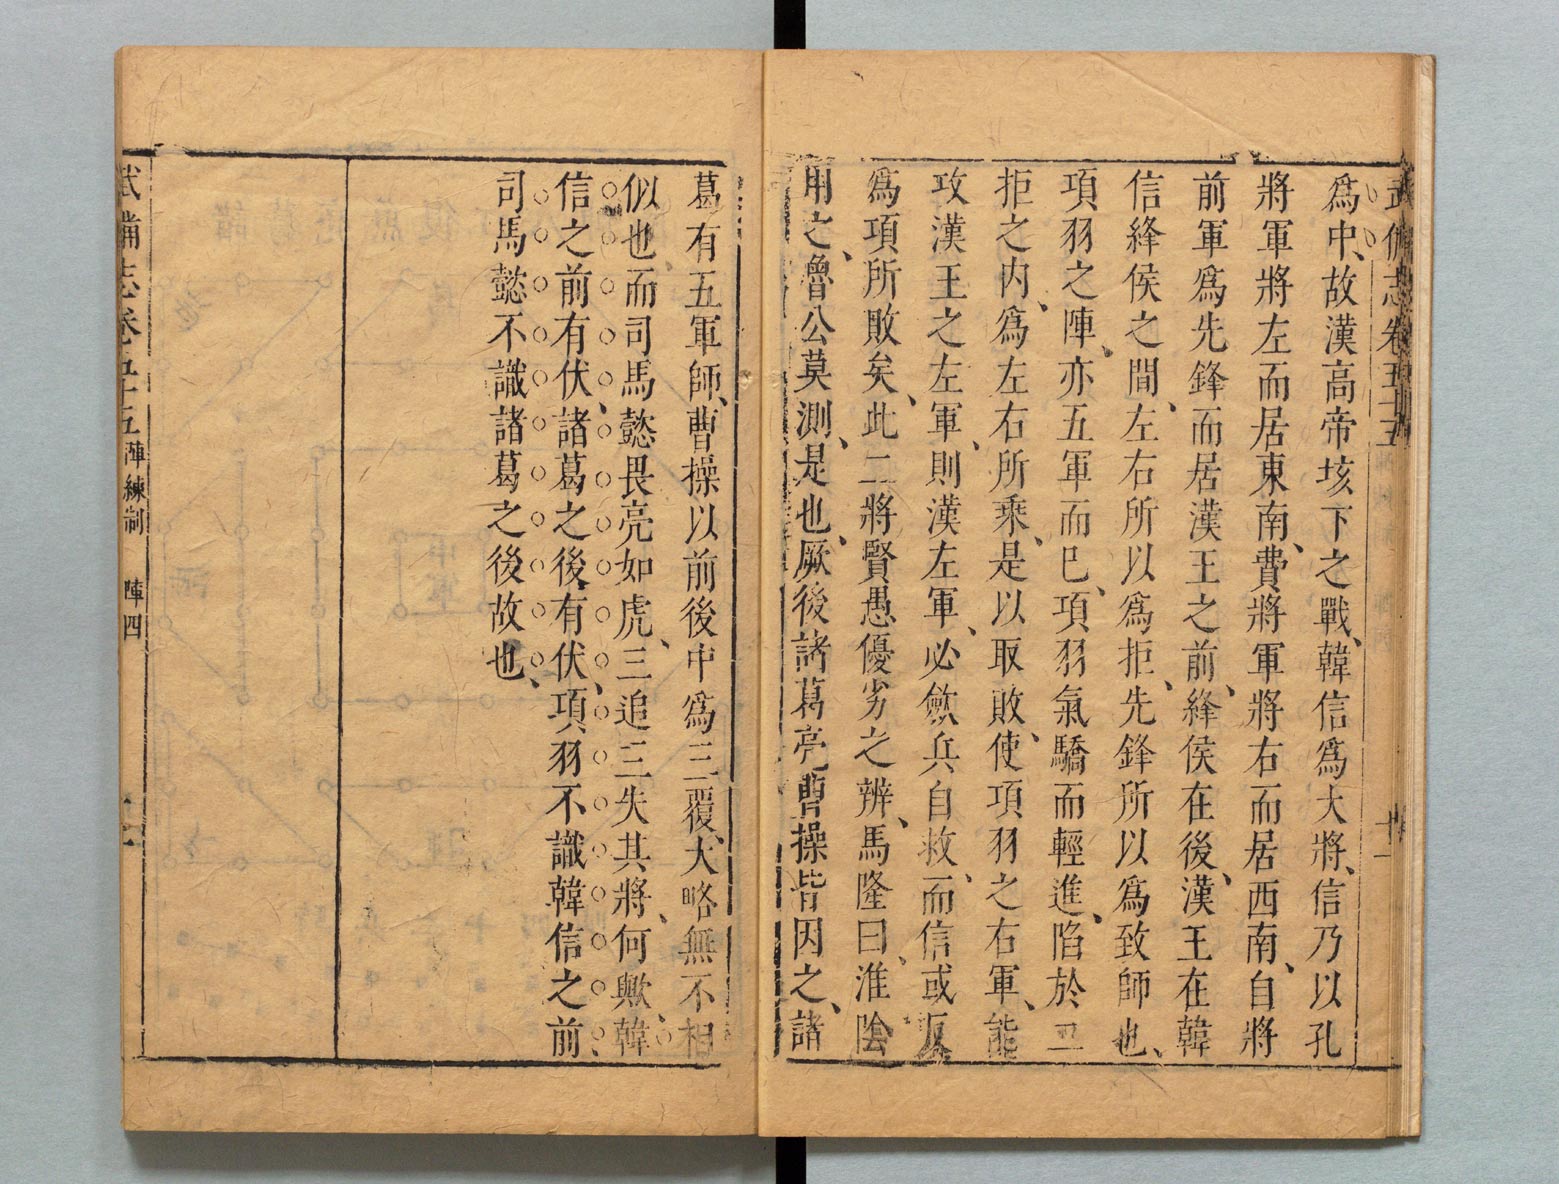 武備志卷五十五
十一
爲中、故漢高帝垓下之戰、韓信爲大將、信乃以孔
將軍將左而居東南、費將軍將右而居西南、自將
前軍爲先鋒而居漢王之前、絳侯在後、漢王在韓
信絳侯之間、左右所以爲拒、先鋒所以爲致師也、
項羽之陣、亦五軍而已、項羽氣驕而輕進、陷於三
拒之内、爲左右所乘、是以取敗、使項羽之右軍、能
攻漢王之左軍、則漢左軍、必斂兵自救、而信或反
爲項所敗矣、此二將賢愚優劣之辨、馬隆曰、淮陰
用之、魯公莫測、是也、厥後諸葛亮曹操皆因之、諸
葛有五軍師、曹操以前後中爲三覆、大略無不相
似也、而司馬懿畏亮如虎、三追三失其將、何歟、韓
信之前有伏、諸葛之後有伏、項羽不識韓信之前、
司馬懿不識諸葛之後故也、
武備志卷五十五 陣練制 陣四
十一